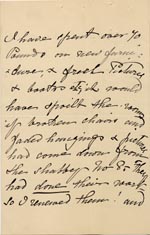 I have spent over 70
Pounds on new furni-
-ture & fresh Pictures
& books which would
have spoilt the rooms
if broken chairs and
faded hangings &
had come down from
the shabby No 8. They
had done their work
so I renewed them: and